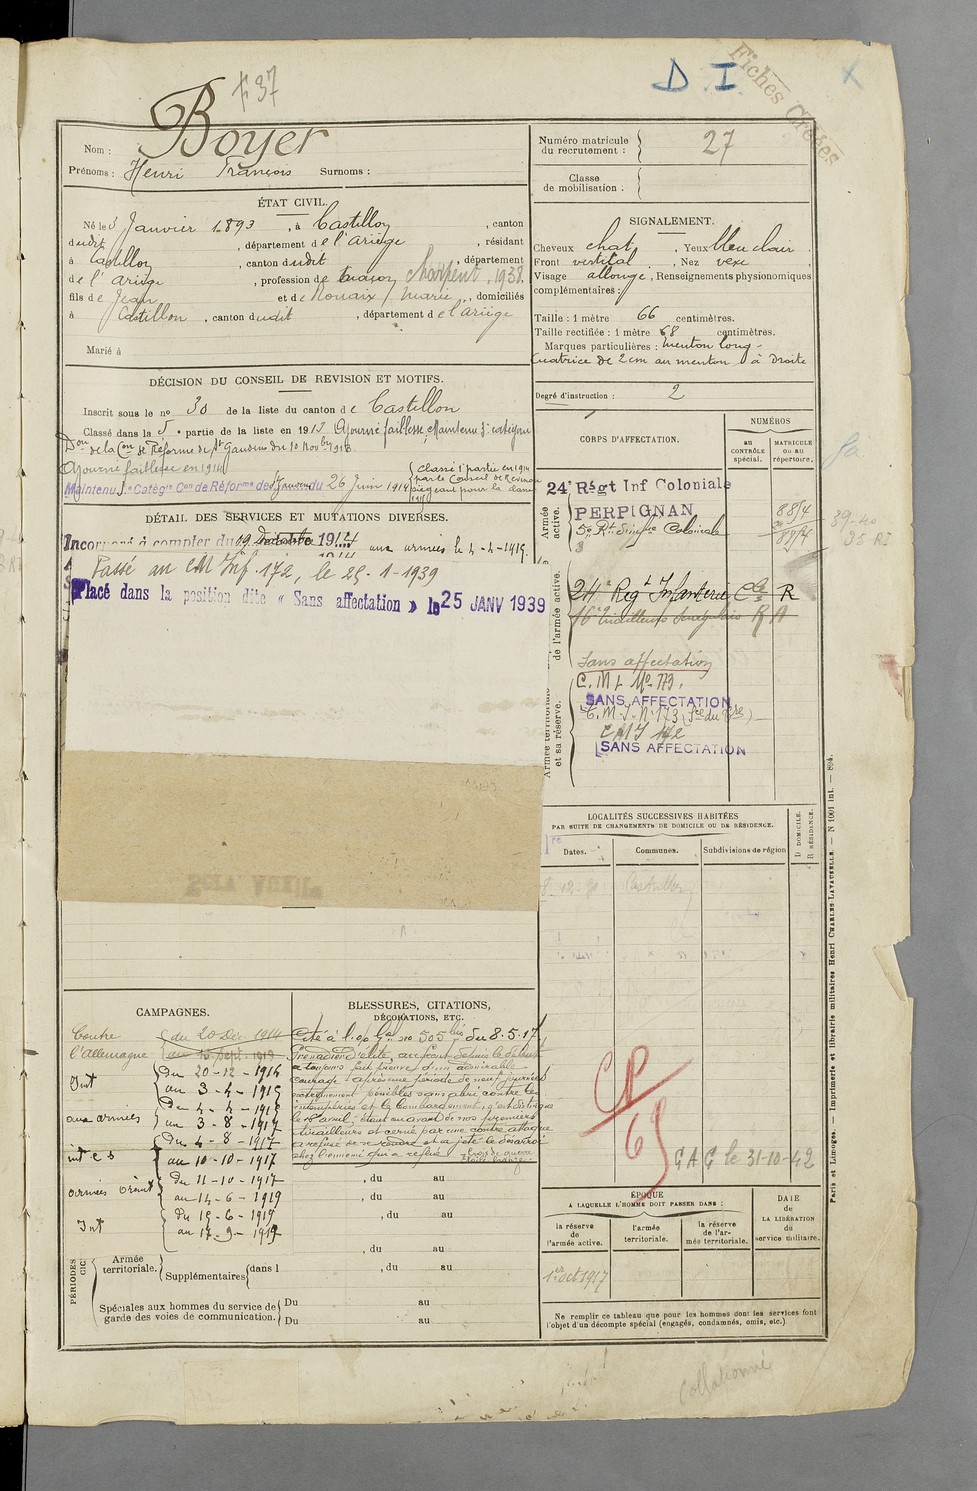 Fiches Creées
D. I.
Nom : Boyer
Prénoms : Henri François Surnoms :
Numéro matricule du recrutement : 27
Classe de mobilisation :
ÉTAT CIVIL.
Né le 3 Janvier 1893, à Castillon, canton
dudit, département de l'Ariège, résidant
à Castillon, canton dudit, département
de l'Ariège, profession de Charpent. 1938.
fils de Jean et de Rouaix Marie, domiciliés
à Castillon, canton dudit, département de l'Ariège
Marié à
SIGNALEMENT.
Cheveux chat, Yeux bleu clair
Front vertical, Nez vexe
Visage allongé, Renseignements physionomiques
complémentaires :
Taille : 1 mètre 66 centimètres.
Taille rectifiée : 1 mètre 68 centimètres.
Marques particulières : menton long -
Cicatrice de 2 cm au menton à Droite
Degré d'instruction : 2
DÉCISION DU CONSEIL DE REVISION ET MOTIFS.
Inscrit sous le no 30 de la liste du canton de Castillon
Classé dans la 5e partie de la liste en 1913 Ajourné faiblesse, Maintenu
de la Con de Réforme de St Gaudens du 10 Novbre 1916
Ajourné faiblesse en 1914
Maintenu Catégie Con de Réforme de du 26 Juin 1917
Classé 1e partie en 1914
par le Conseil de Revision
siégeant pour la classe
DÉTAIL DES SERVICES ET MUTATIONS DIVERSES.
Incorporé à compter du 19 1914 aux armées le 4-4-1915.
Passé au CM Inf. 172, le 25-1-1939
Placé dans la position dite « Sans affectation » le 25 JANV 1939
CORPS D'AFFECTATION.
NUMÉROS
au CONTRÔLE spécial.
MATRICULE OU AU répertoire.
Armée active.
24e Régt Inf Coloniale
PERPIGNAN
5e Rt d'infie Coloniale
8854
8854
39-40
35 RI
de l'armée active.
24e Regt Infanterie Cle R
16e Tirailleurs Sénégalais R A
Sans affectation
Armée territoriale et sa réserve.
C. M I No 173.
SANS AFFECTATION
C. M. I. No 173
C M I 172
SANS AFFECTATION
LOCALITÉS SUCCESSIVES HABITÉES
PAR SUITE DE CHANGEMENTS DE DOMICILE OU DE RÉSIDENCE.
Dates.
Communes.
Subdivisions de région
D DOMICILE.
R RÉSIDENCE.
Castillon
CAMPAGNES.
Contre l'Allemagne
du 20 Déc. 1914
au 15 Sept. 1919
Int
Du 20-12-1914
au 3-4-1915
aux armées
Du 4-4-1915
au 3-8-1917
int e s
Du 4-8-1917
au 10-10-1917
armées Orient
Du 11-10-1917
au 14-6-1919
Int
Du 15-6-1919
au 17-9-1919
BLESSURES, CITATIONS,
DÉCORATIONS, ETC.
Cité à l'o. Gal no 505 bis du 8.5.17
Grenadier d'élite, au front depuis le début
a toujours fait preuve d'un admirable
courage. Après une période de neuf journées
extrêmement pénibles sans abri contre les
intempéries et le bombardement, s'est distingué
le 16 avril, étant en avant de nos premiers
tirailleurs et cerné par une contre attaque
a refusé de se rendre et a jeté le désarroi
chez l'ennemi qui a reflué Croix de guerre
, du au
, du au
, du au
, du au
PÉRIODES
Armée territoriale.
Supplémentaires dans l , du au
Spéciales aux hommes du service de garde des voies de communication.
Du au
Du au
CP
69
GAG le 31-10-42
ÉPOQUE
A LAQUELLE L'HOMME DOIT PASSER DANS :
la réserve de l'armée active.
l'armée territoriale.
la réserve de l'armée territoriale.
DATE de LA LIBÉRATION du service militaire.
1er oct 1917
Ne remplir ce tableau que pour les hommes dont les services font
l'objet d'un décompte spécial (engagés, condamnés, omis, etc.).
Paris et Limoges. — Imprimerie et librairie militaires Henri CHARLES-LAVAUZELLE. — N 1001 int. — 894.
Collationné